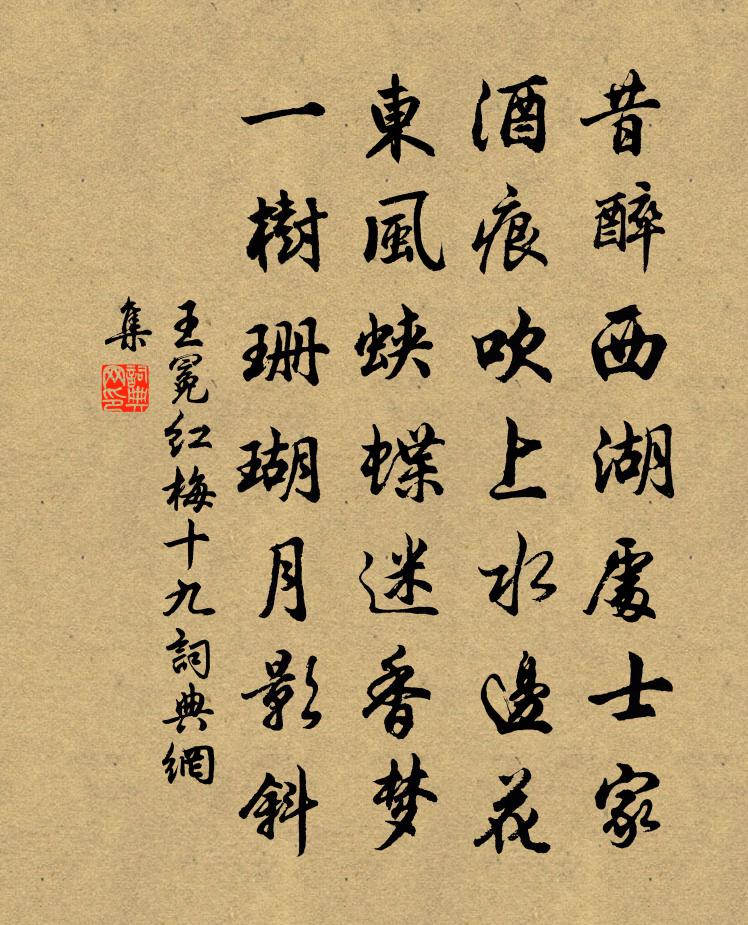 昔醉西湖處士家
酒痕吹上水邊花
東風蛺蝶迷香梦
一樹珊瑚月影斜
王冕红梅十九詞典網
集
詞典
网印